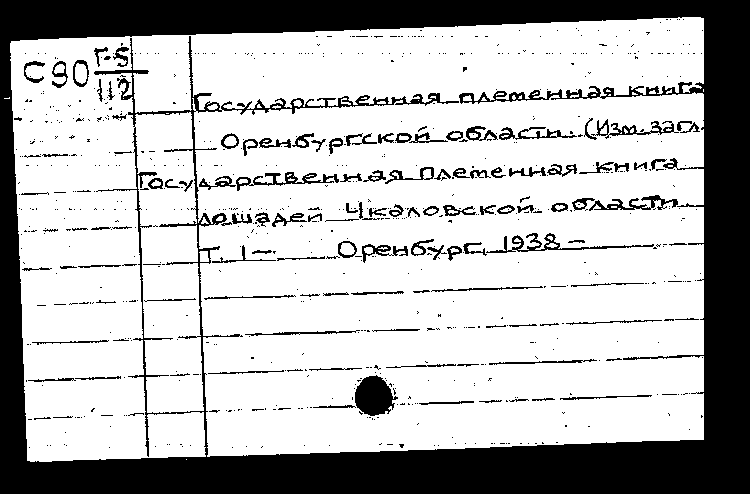 С90 Г-5/112
Государственная племенная книга
Оренбургской области. (Изм. загл.
Государственная племенная книга
лошадей Чкаловской области.
Т. 1— Оренбург, 1938 –